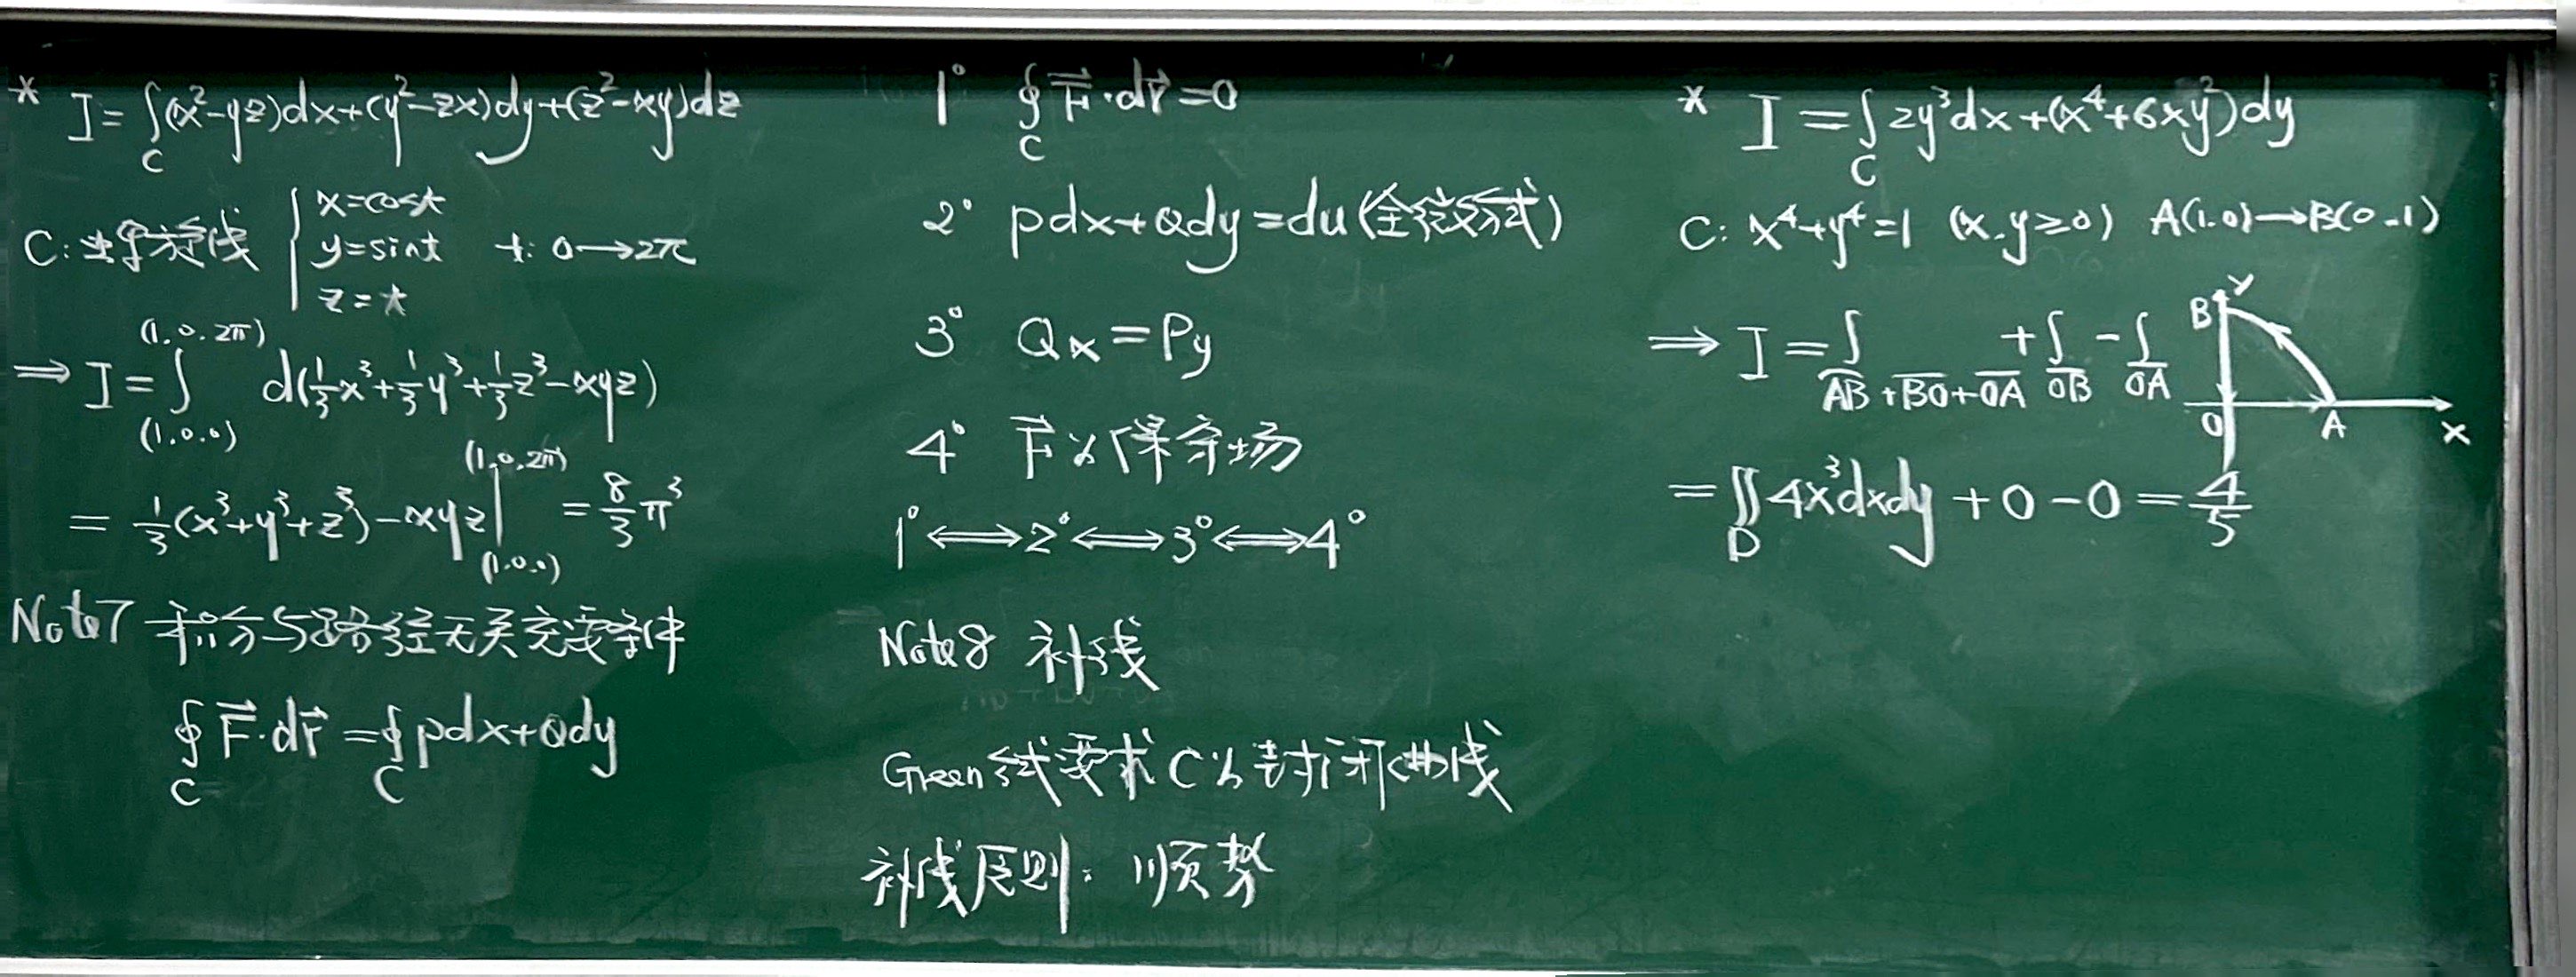 * I=∫_C(x²-yz)dx+(y²-zx)dy+(z²-xy)dz
C:螺旋线 { x=cost
y=sint t: 0→2π
z=t
⇒ I=∫_{(1.0.0)}^{(1.0.2π)} d(1/3x³+1/3y³+1/3z³-xyz)
= 1/3(x³+y³+z³)-xyz|_{(1.0.0)}^{(1.0.2π)} = 8/3π³
Note7 积分与路径无关充要条件
∮_C F⃗·dr⃗ =∮_C pdx+Qdy
1° ∮_C F⃗·dr⃗=0
2° pdx+Qdy=du(全微分式)
3° Qx=Py
4° F⃗为保守场
1°⟺2°⟺3°⟺4°
Note8 补线
Green公式要求C为封闭曲线
补线原则: 顺势
* I=∫_C 2y³dx+(x⁴+6xy²)dy
C: x⁴+y⁴=1 (x.y≥0) A(1.0)→B(0.1)
⇒ I=∫_{A͞B+B͞O+O͞A} +∫_{O͞B} -∫_{O͞A}
B y
O A x
=∬_D 4x³dxdy+0-0=4/5